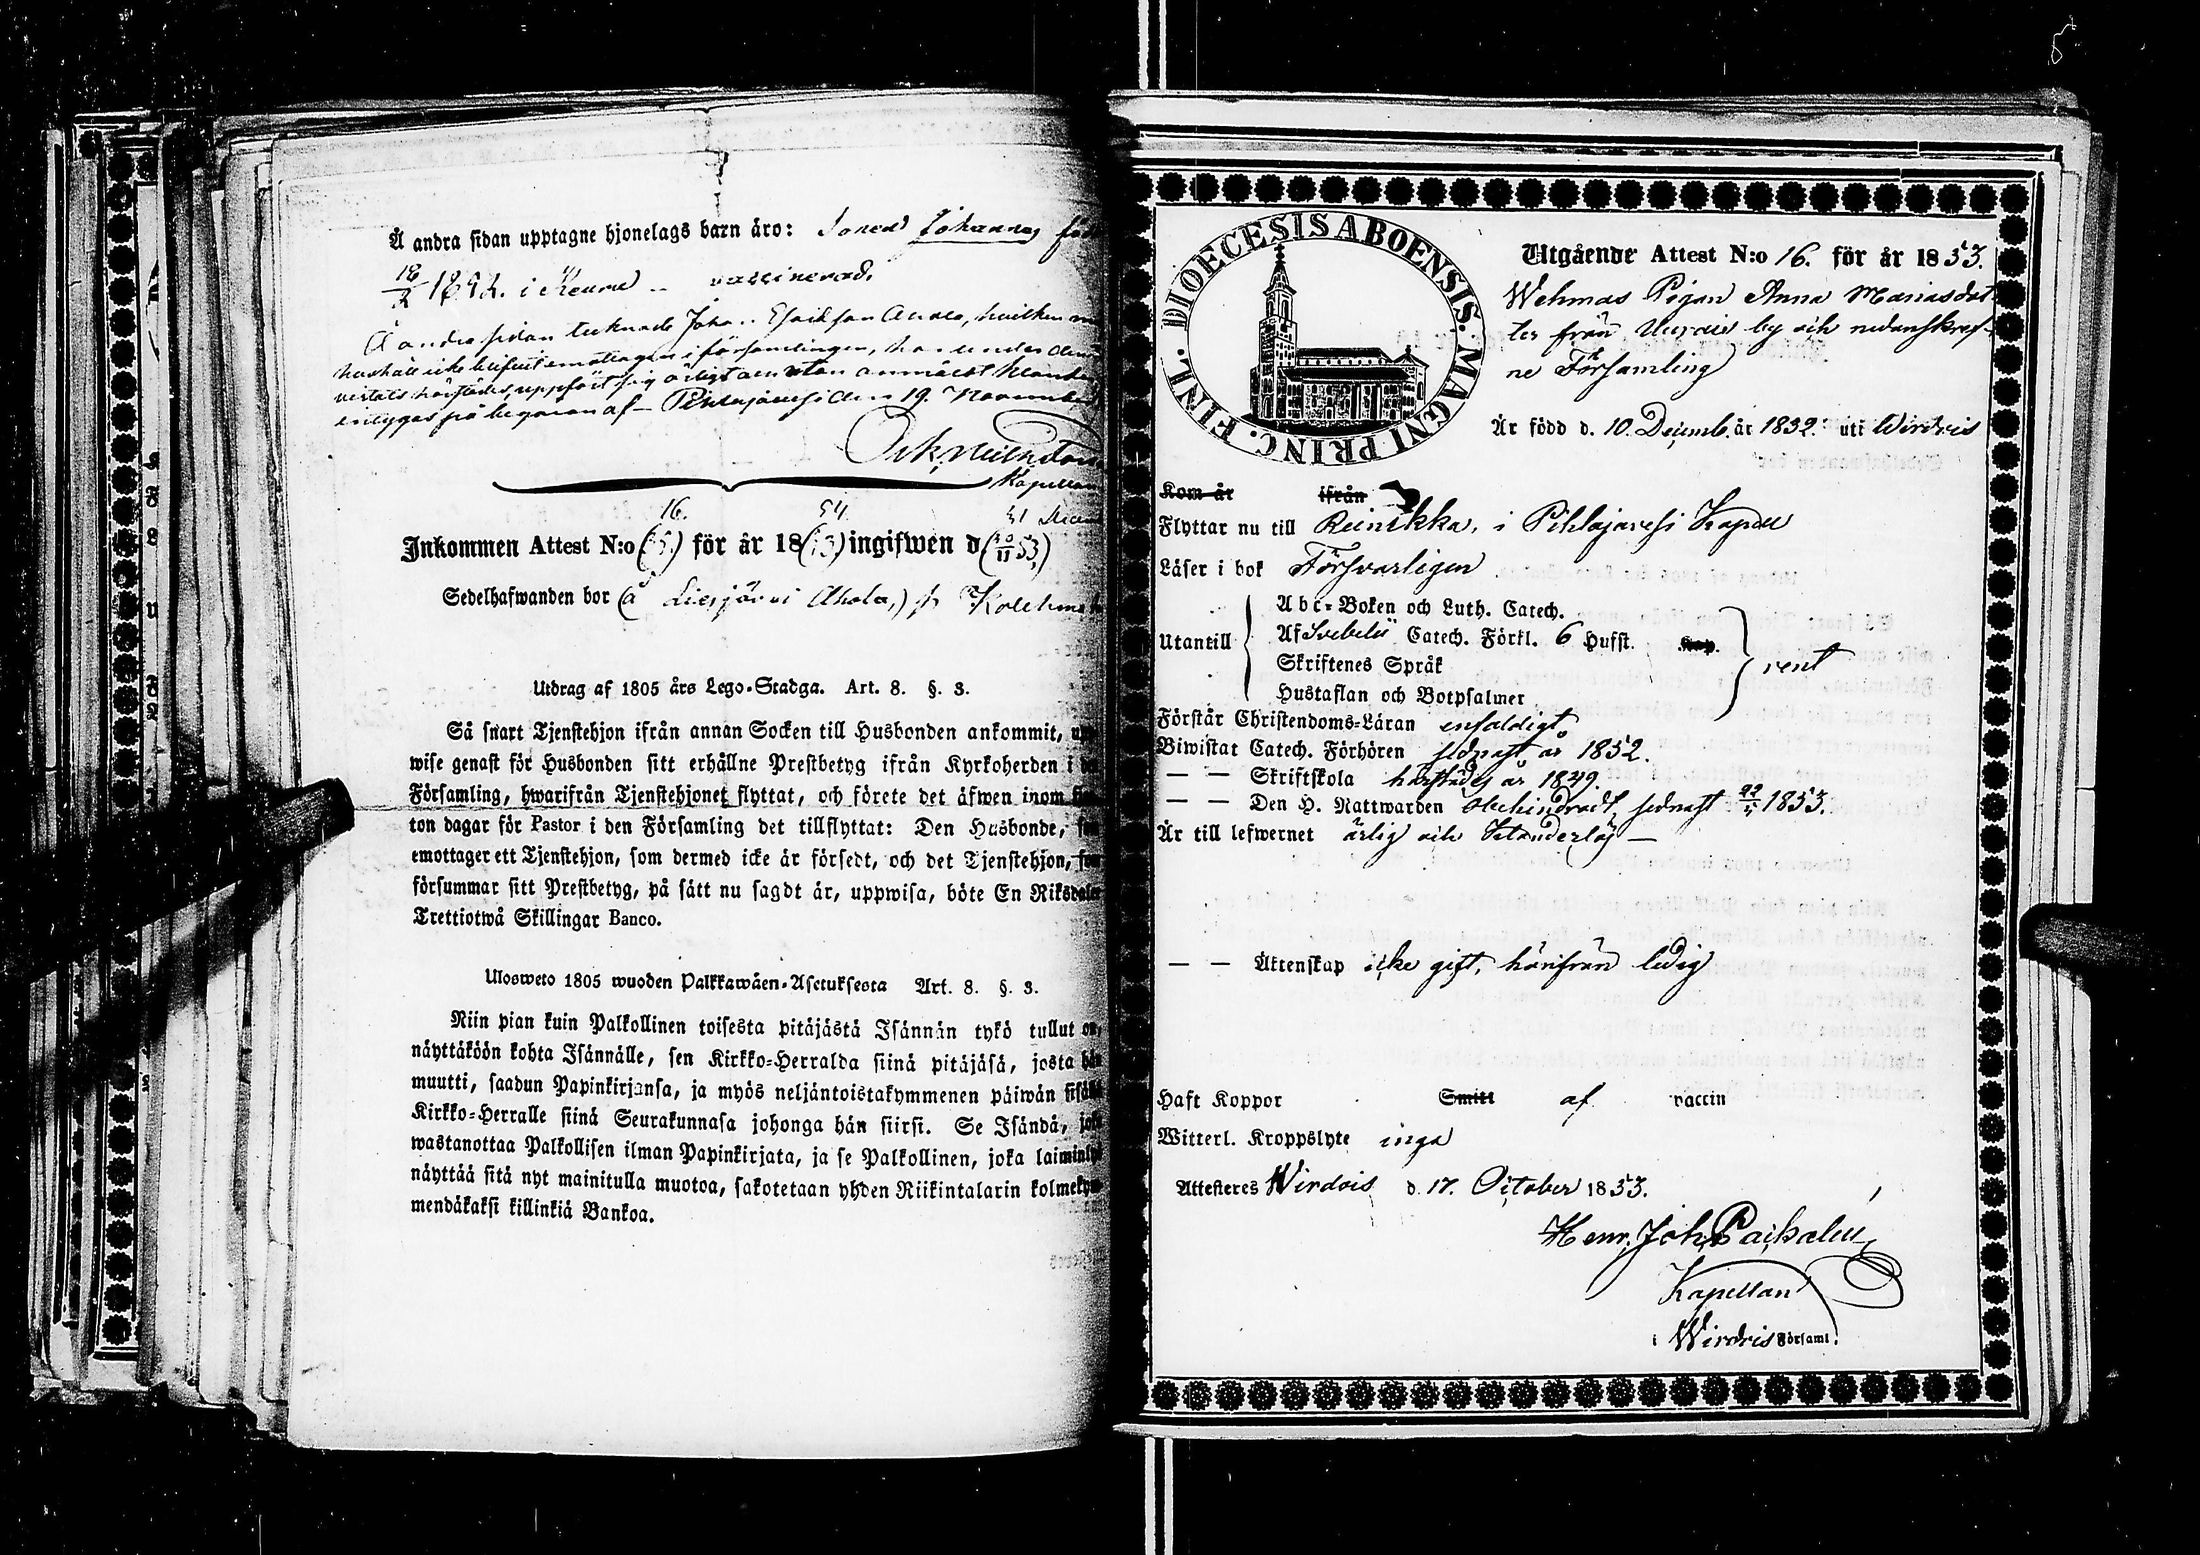 5
Å andra sidan upptagne hjonelags barn äro: Sonen Johannes född
i Keuru vaccinerad.
Å andra sidan tecknade Joh. Esaiksson Ahola, hvilken
hushåll icke blifvit emottagen i församlingen, har under
vistats härstädes, uppfört sig ärligt och utan anmäldt klander
intygas på begäran af Pihlajavesi den 19. November
Kapellan
16. 54. 31 Decem
Inkommen Attest N:o (15.) för år 18(53) ingifwen d (20/11 53.)
Sedelhafwanden bor (å Liesjärvi Ahola,)
Utdrag af 1805 års Lego-Stadga. Art. 8. §. 3.
Så snart Tjenstehjon ifrån annan Socken till Husbonden ankommit, upp-
wise genast för Husbonden sitt erhållne Prestbetyg ifrån Kyrkoherden i den
Församling, hwarifrån Tjenstehjonet flyttat, och förete det äfwen inom fjor-
ton dagar för Pastor i den Församling det tillflyttat: Den Husbonde, som
emottager ett Tjenstehjon, som dermed icke är försedt, och det Tjenstehjon, som
försummar sitt Prestbetyg, på sätt nu sagdt är, uppwisa, böte En Riksdaler
Trettiotwå Skillingar Banco.
Ulosweto 1805 wuoden Palkkawäen-Asetuksesta Art. 8. §. 3.
Niin pian kuin Palkollinen toisesta pitäjästä Isännän tykö tullut on,
näyttäköön kohta Isännälle, sen Kirkko-Herralda siinä pitäjäsä, josta hän
muutti, saadun Papinkirjansa, ja myös neljäntoistakymmenen päiwän sisällä
Kirkko-Herralle siinä Seurakunnasa johonga hän siirsi. Se Isändä, joka
wastanottaa Palkollisen ilman Papinkirjata, ja se Palkollinen, joka laiminlyö
näyttää sitä nyt mainitulla muotoa, sakotetaan yhden Riikintalarin kolmekym-
mendäkaksi killinkiä Bankoa.
FINL. DIOECESIS ABOENSIS. MAGNI PRINC.
Utgående Attest N:o 16. för år 1853.
Wehmas Pigan Anna Mariasdot
ter från by och nedanskref-
ne Församling
Är född d. 10. Decemb. år 1832. uti Wirdois
Kom år ifrån
Flyttar nu till Reinikka, i Pihlajavesi Kapell
Läser i bok Försvarligen
Abc-Boken och Luth. Catech.
Utantill Af Svebelii Catech. Förkl. 6 Hufst. Kap. rent
Skriftenes Språk
Hustaflan och Botpsalmer
Förstår Christendoms-Läran enfaldigt
Biwistat Catech. Förhören sednast år 1852.
— — Skriftskola härstädes år 1849.
— — Den H. Nattwarden obehindradt, sednast 22/5 1853.
Är till lefwernet ärlig och klanderlös —
— — Äktenskap icke gift, härifrån ledig
Haft Koppor Smitt af vaccin
Witterl. Kroppslyte inga
Attesteres Wirdois d. 17. October 1853.
Henr. Joh.
Kapellan
i Wirdois Församl.